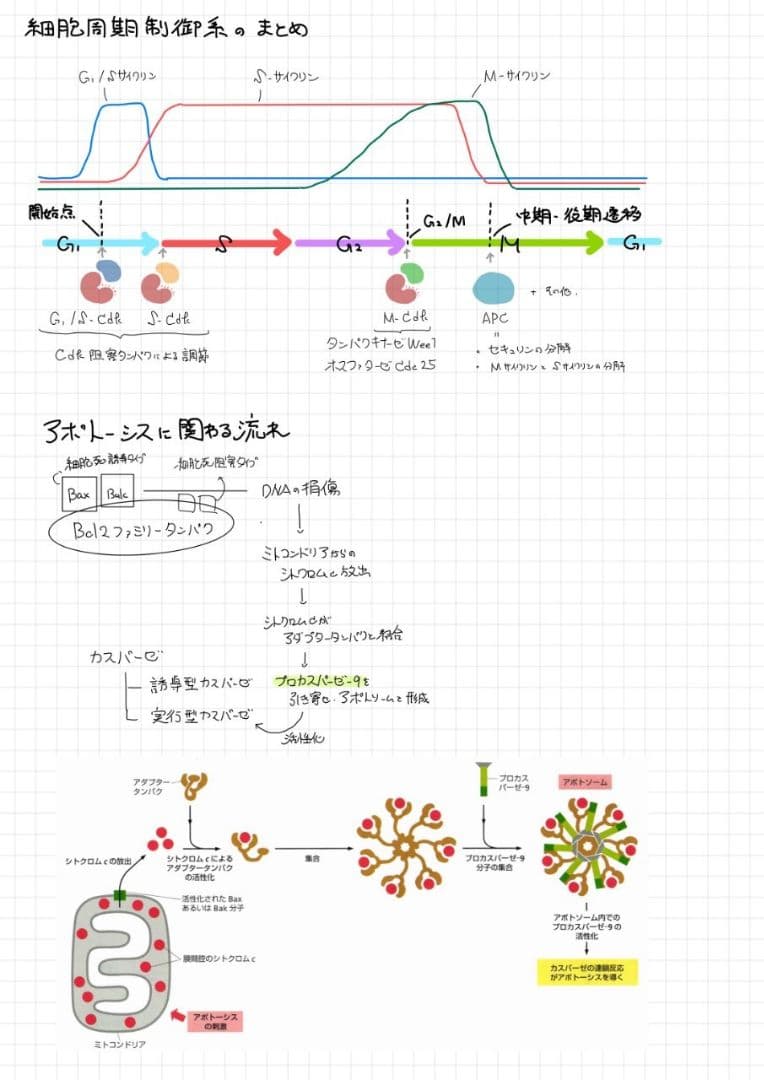 細胞周期制御系のまとめ
G₁/Sサイクリン
S-サイクリン
M-サイクリン
開始点
G₂/M
中期-後期遷移
G₁
S
G₂
M
G₁
G₁/S-Cdk
S-Cdk
M-Cdk
APC
+ その他.
Cdk阻害タンパクによる調節
タンパクキナーゼWee1
ホスファターゼCdc25
=
・セキュリンの分解
・MサイクリンとSサイクリンの分解
アポトーシスに関わる流れ
細胞死誘導タイプ
細胞死阻害タイプ
Bax
Bak
Bcl2ファミリータンパク
DNAの損傷
ミトコンドリアからの
シトクロムc放出
シトクロムcが
アダプタータンパクと結合
カスパーゼ
誘導型カスパーゼ
実行型カスパーゼ
プロカスパーゼ-9を
引き寄せ.アポトソームを形成
活性化
アダプター
タンパク
プロカス
パーゼ-9
アポトソーム
シトクロムcの放出
シトクロムcによる
アダプタータンパク
の活性化
集合
プロカスパーゼ-9
分子の集合
活性化されたBax
あるいはBak分子
膜間腔のシトクロムc
アポトーシス
の刺激
ミトコンドリア
アポトソーム内での
プロカスパーゼ-9の
活性化
カスパーゼの連鎖反応
がアポトーシスを導く